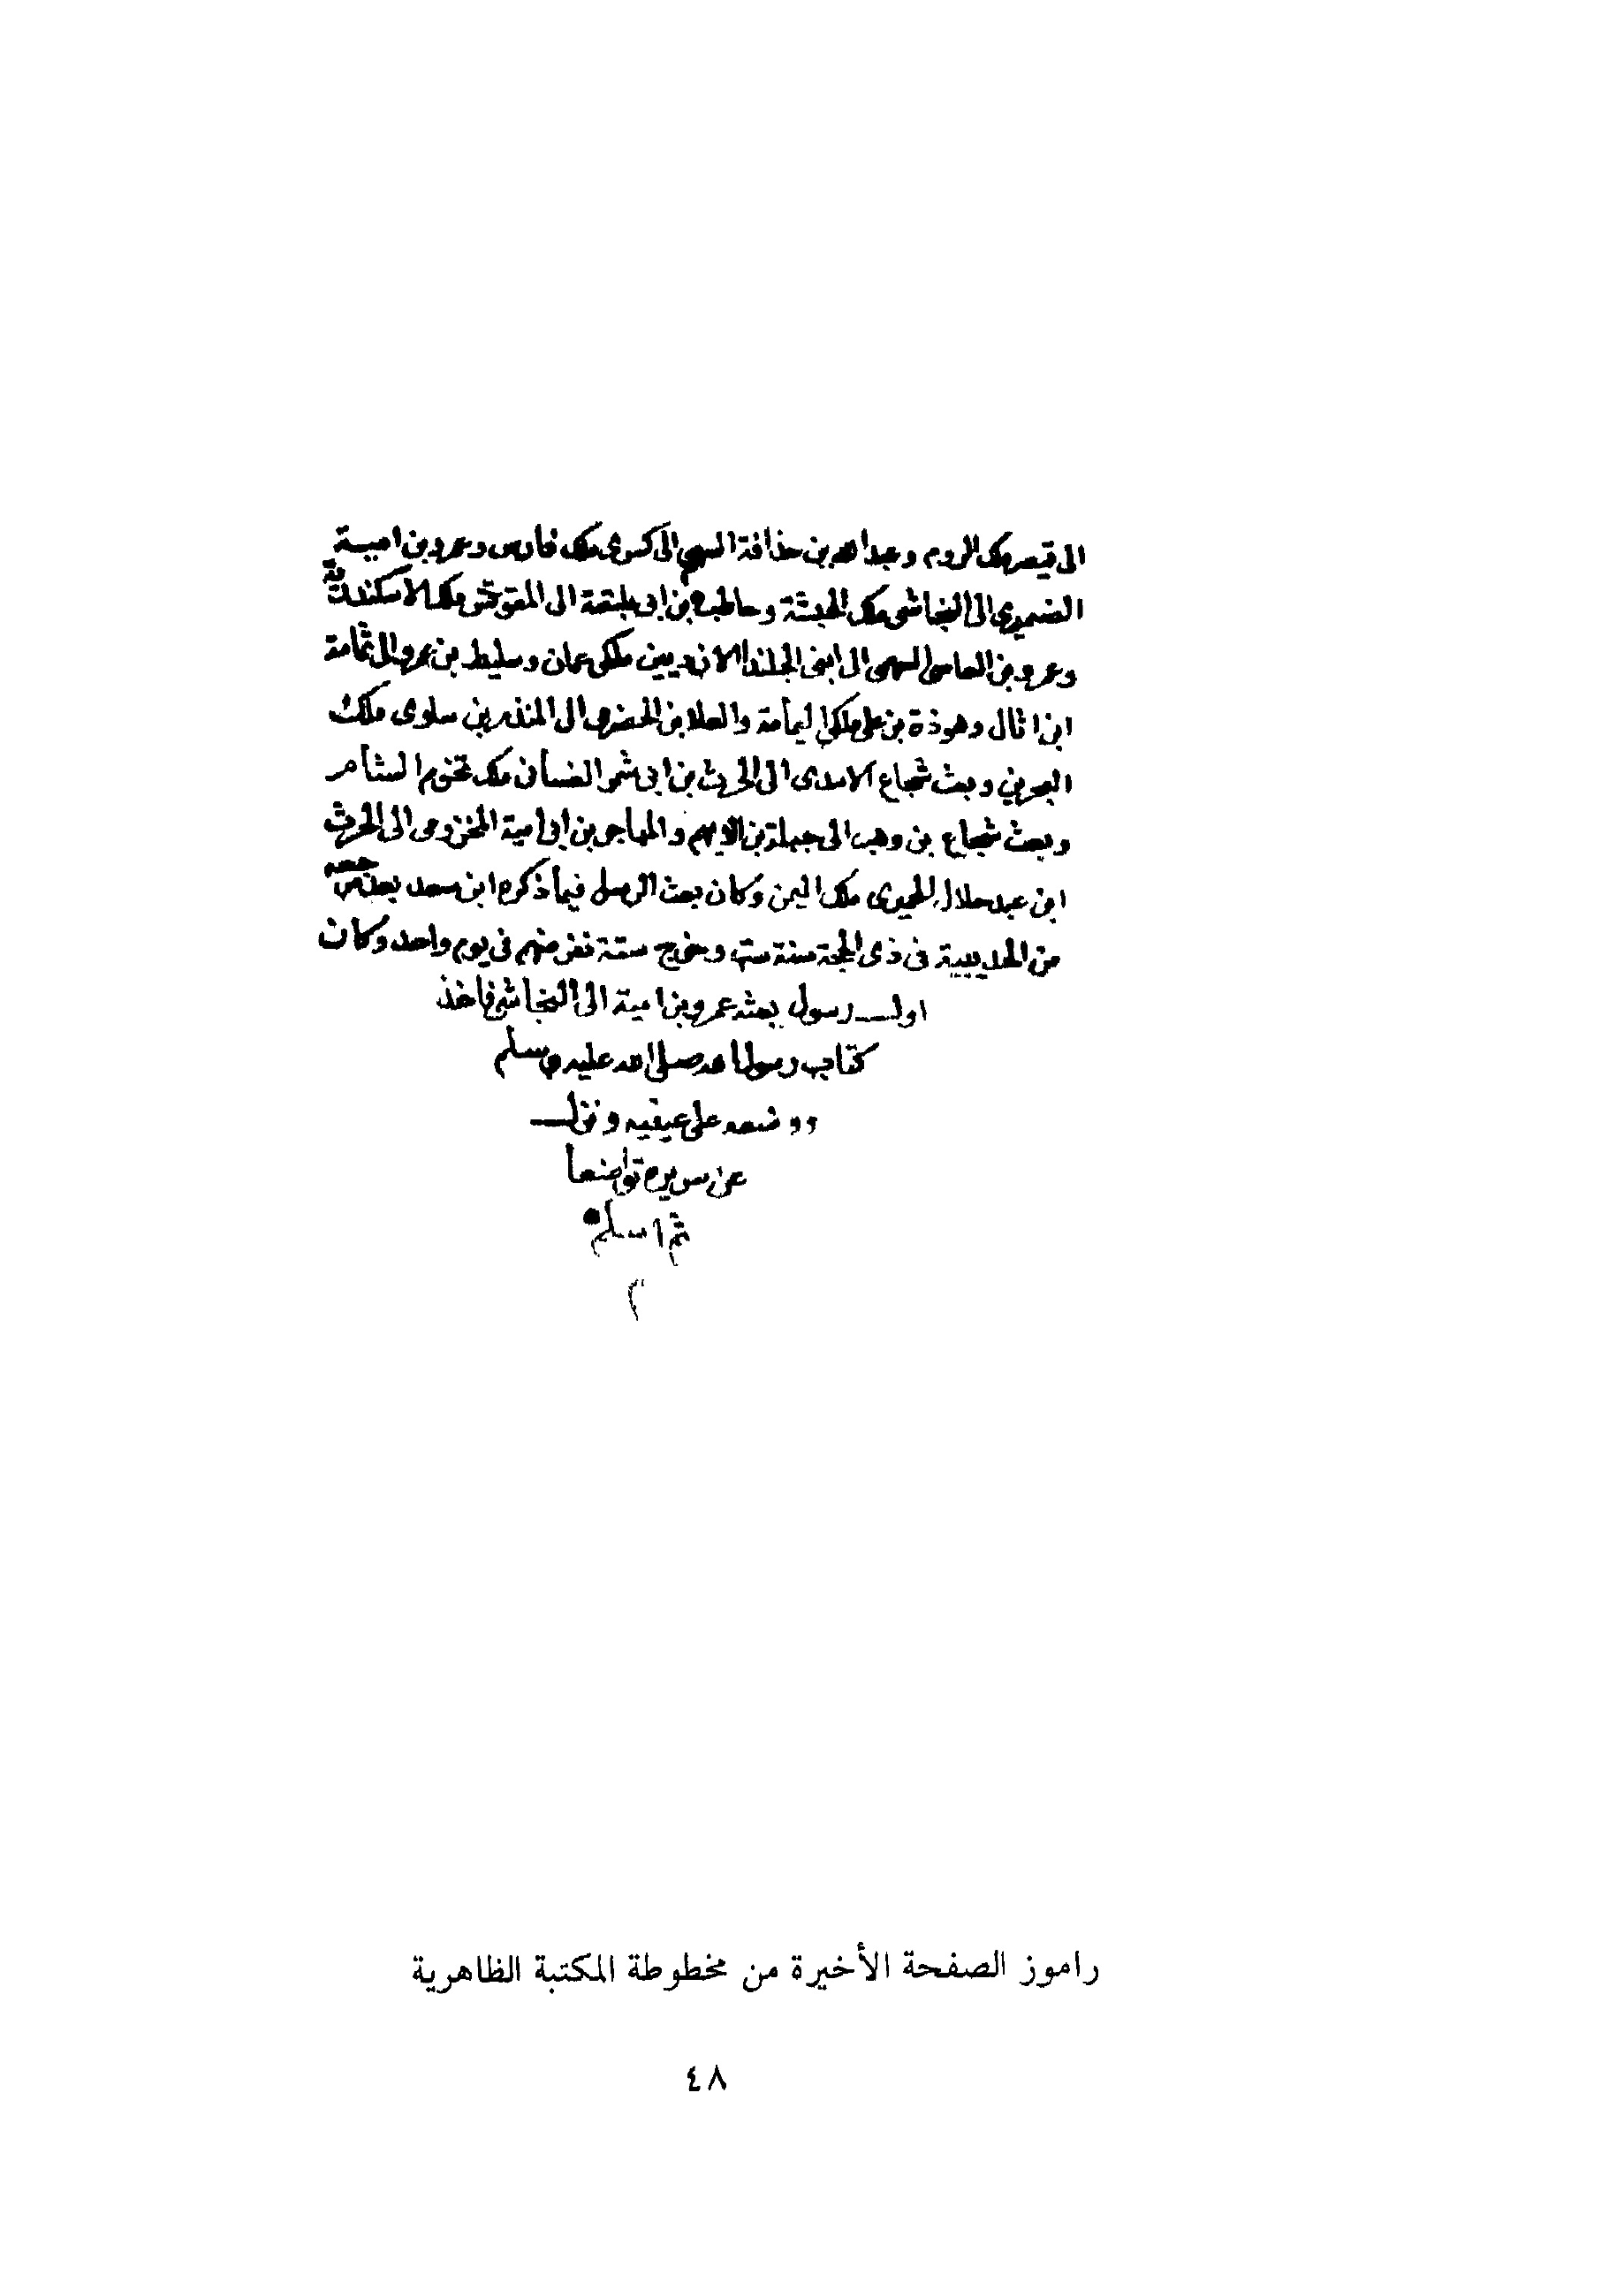 الى قيصر ملك الروم وعبد الله بن حذافة السهمي الى كسرى ملك فارس وعمرو بن امية
الضميرى الى النجاشى ملك الحبشة وحاطب بن ابى بلتعة الى المقوقس ملك الاسكندرية
وعمرو بن العاصى السهمى الى ابنى الجلندا الازديين ملكى عمان وسليط بن عمرو الى ثمامة
ابن اثال وهوذة بن على ملكى اليمامة والعلا بن الحضرمى الى المنذر بن ساوى ملك
البحرين وبعث شجاع الاسدى الى الحرث بن ابى شمر الغسانى ملك تخوم الشام
وبعث شجاع بن وهب الى جبلة بن الايهم والمهاجر بن ابى امية المخزومى الى الحرث
ابن عبد كلال الحميرى ملك اليمن وكان بعث الرسل فيما ذكره ابن سعد بعد
من الحديبية فى ذى الحجة سنة ست وخرج ستة نفر منهم فى يوم واحد وكان
اول رسول بعثه عمرو بن امية الى النجاشى فاخذ
كتاب رسول الله صلى الله عليه وسلم
ووضعه على عينيه ونزل
عن سريره تواضعا
ثم اسلم
م
راموز الصفحة الأخيرة من مخطوطة المكتبة الظاهرية
٤٨